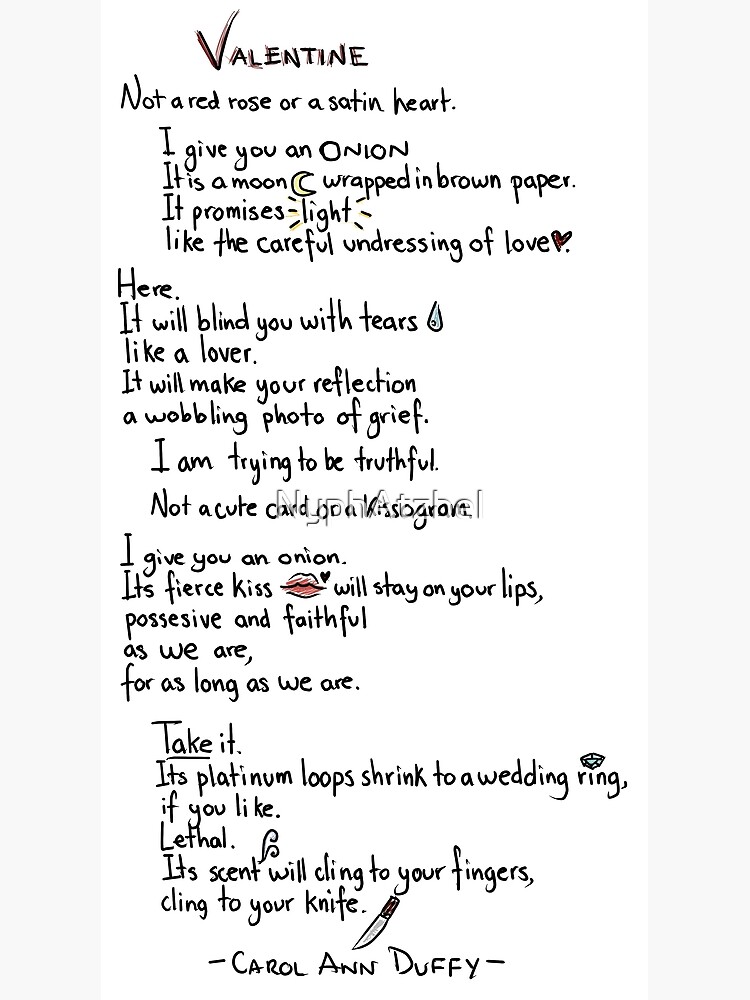 VALENTINE
Not a red rose or a satin heart.
I give you an ONION
It is a moon wrapped in brown paper.
It promises light
like the careful undressing of love.
Here.
It will blind you with tears
like a lover.
It will make your reflection
a wobbling photo of grief.
I am trying to be truthful.
Not a cute card or a kissogram.
NyphAtzhel
I give you an onion.
Its fierce kiss will stay on your lips,
possesive and faithful
as we are,
for as long as we are.
Take it.
Its platinum loops shrink to a wedding ring,
if you like.
Lethal.
Its scent will cling to your fingers,
cling to your knife.
- CAROL ANN DUFFY -